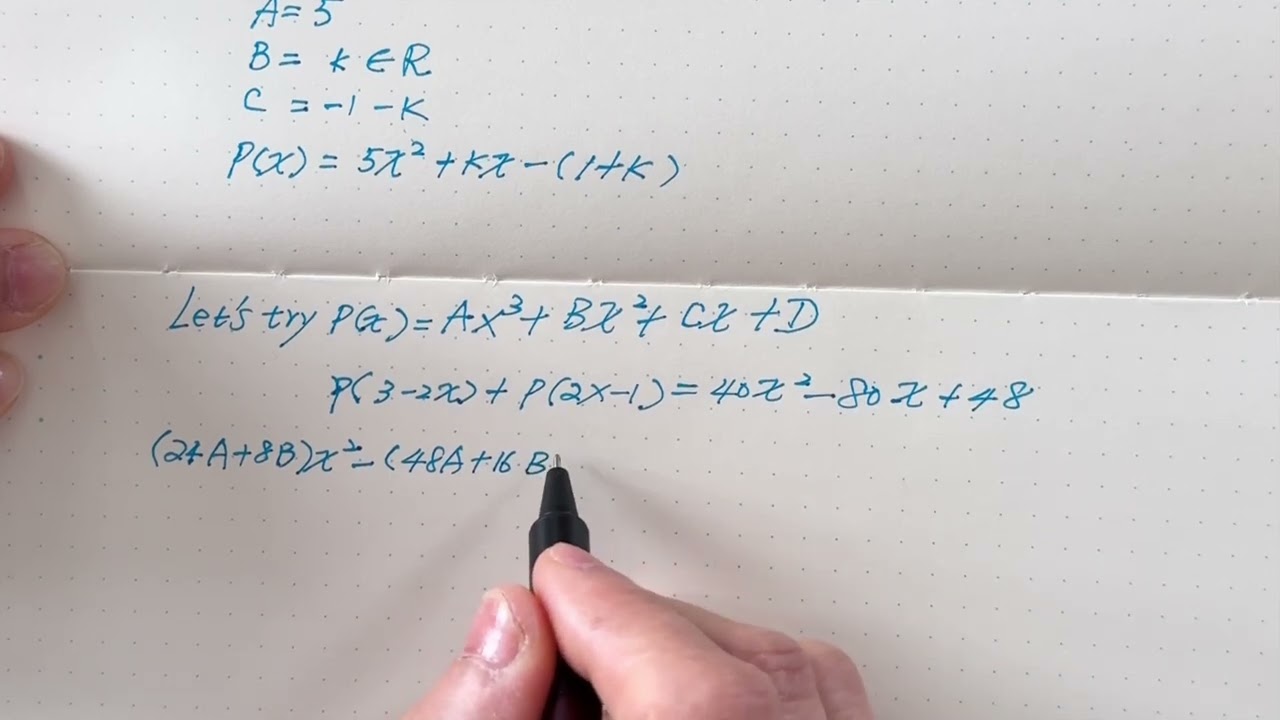 A = 5
B = k ∈ R
C = -1 - K
P(x) = 5x² + Kx - (1+K)
Let's try P(x) = Ax³ + Bx² + Cx + D
P(3-2x) + P(2x-1) = 40x² - 80x + 48
(24A+8B)x² - (48A+16B